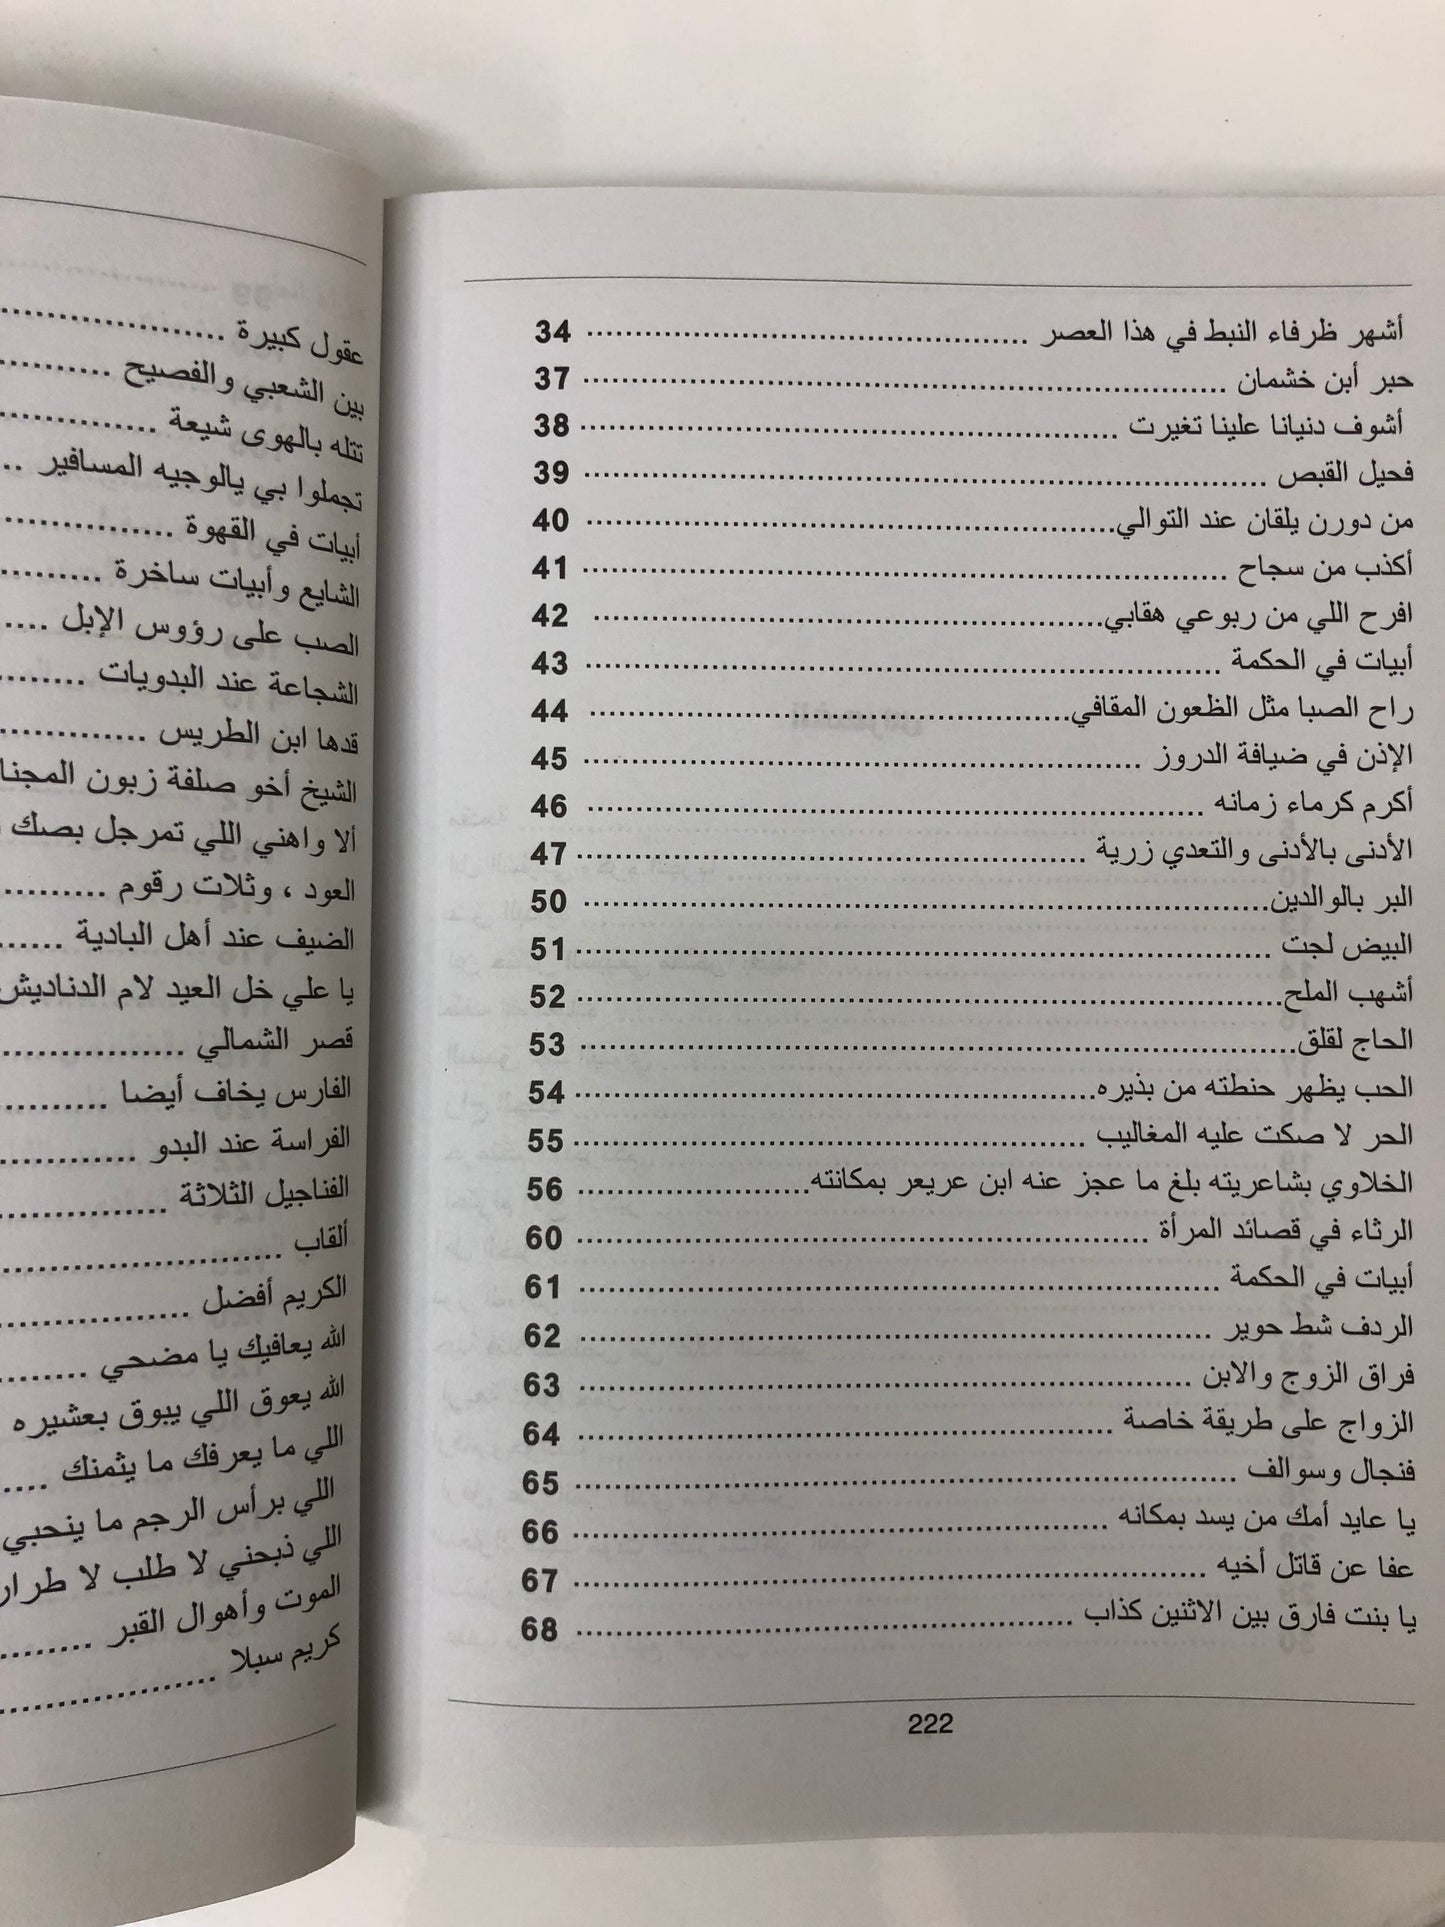 أشهر ظرفاء النبط في هذا العصر ........................................ 34
حبر أبن خشمان ........................................ 37
أشوف دنيانا علينا تغيرت ........................................ 38
فحيل القبص ........................................ 39
من دورن يلقان عند التوالي........................................ 40
أكذب من سجاح ........................................ 41
افرح اللي من ربوعي هقابي........................................ 42
أبيات في الحكمة ........................................ 43
راح الصبا مثل الظعون المقافي........................................ 44
الإذن في ضيافة الدروز ........................................ 45
أكرم كرماء زمانه ........................................ 46
الأدنى بالأدنى والتعدي زرية ........................................ 47
البر بالوالدين........................................ 50
البيض لجت ........................................ 51
أشهب الملح........................................ 52
الحاج لقلق........................................ 53
الحب يظهر حنطته من بذيره........................................ 54
الحر لا صكت عليه المغاليب ........................................ 55
الخلاوي بشاعريته بلغ ما عجز عنه ابن عريعر بمكانته.................... 56
الرثاء في قصائد المرأة ........................................ 60
أبيات في الحكمة ........................................ 61
الردف شط حوير ........................................ 62
فراق الزوج والابن ........................................ 63
الزواج على طريقة خاصة ........................................ 64
فنجال وسوالف ........................................ 65
يا عايد أمك من يسد بمكانه ........................................ 66
عفا عن قاتل أخيه ........................................ 67
يا بنت فارق بين الاثنين كذاب ........................................ 68
222
عقول كبيرة ....................
بين الشعبي والفصيح ..........
تتله بالهوى شيعة ..............
تجملوا بي يالوجيه المسافير ..
أبيات في القهوة ...............
الشايع وأبيات ساخرة ..........
الصب على رؤوس الإبل ....
الشجاعة عند البدويات ........
قدها ابن الطريس .............
الشيخ أخو صلفة زبون
ألا واهني اللي تمرجل بصك
العود ، وثلاث رقوم ..........
الضيف عند أهل البادية ......
يا علي خل العيد لام الدناديش
قصر الشمالي ................
الفارس يخاف أيضا ..........
الفراسة عند البدو ............
الفناجيل الثلاثة ...............
ألقاب ........................
الكريم أفضل .................
الله يعافيك يا مضحي ........
الله يعوق اللي يبوق بعشيره
اللي ما يعرفك ما يثمنك ....
اللي برأس الرجم ما ينحبي
اللي ذبحني لا طلب لا
الموت وأهوال القبر ........
كريم سبلا ...................